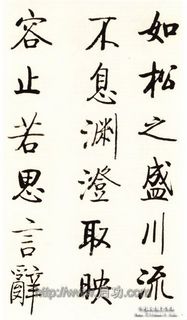 如松之盛川流
不息渊澄取映
容止若思言辭